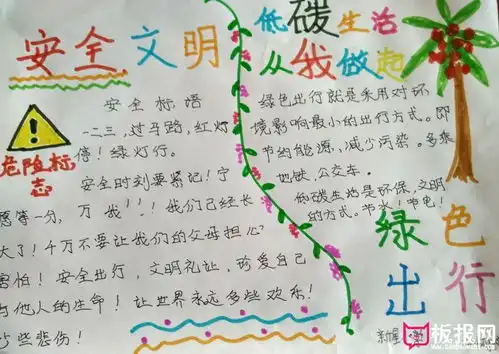 安全文明
安全标语
一二三，过马路，红灯
停！绿灯行。
危险标
志
安全时刻要紧记！宁
愿等一分，万我！！！我们已经长
大了！千万不要让我们的父母担心
害怕！安全出行，文明礼让，珍爱自己
与他人的生命！让世界永远多些欢乐！
少些悲伤！
低碳生活
从我做起
绿色出行就是采用对环
境影响最小的出行方式。即
节约能源，减少污染。多乘
地铁，公交车。
低碳生活是环保，文明
的方式。节水！节电！
绿色
出行
板报网